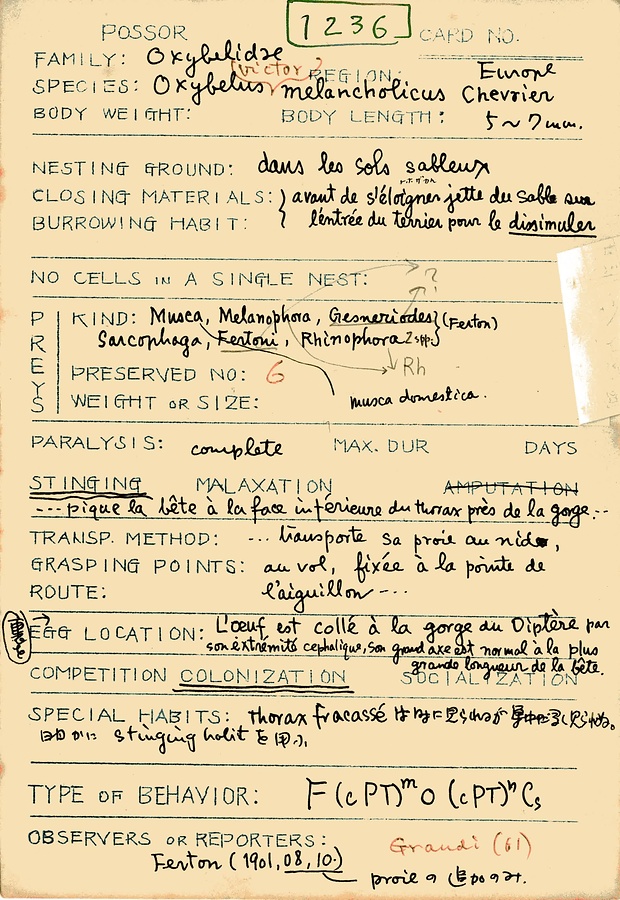 1236
POSSOR CARD NO.
FAMILY: Oxybelidae
(victor) REGION: Europe
SPECIES: Oxybelus melancholicus Chevrier
BODY WEIGHT: BODY LENGTH: 5~7mm.
NESTING GROUND: dans les sols sableux
CLOSING MATERIALS: } avant de s'éloigner jette du sable sur
BURROWING HABIT: } l'éntrée du terrier pour le dissimuler
NO CELLS IN A SINGLE NEST: ?
PREYS
KIND: Musca, Melanophora, Gesneriodes } (Ferton)
Sarcophaga, Fertoni, Rhinophora 2spp.
PRESERVED NO: 6 Rh
WEIGHT OR SIZE: musca domestica.
PARALYSIS: complete MAX. DUR DAYS
STINGING MALAXATION AMPUTATION
--- pique la bête à la face inférieure du thorax près de la gorge. --
TRANSP. METHOD: --- transporte sa proie au nid,
GRASPING POINTS: au vol, fixée à la pointe de
ROUTE: l'aiguillon ---
EGG LOCATION: L'œuf est collé à la gorge du Diptère par
son extrémité cephalique, son grand axe est normal à la plus
grande longueur de la bête.
COMPETITION COLONIZATION SOCIALIZATION
SPECIAL HABITS: thorax fracassé は
stinging habit を
TYPE OF BEHAVIOR: F(cPT)ᵐO(cPT)ⁿCs
OBSERVERS OR REPORTERS: Grandi (61)
Ferton (1901, 08, 10.)
proie の追加のみ.